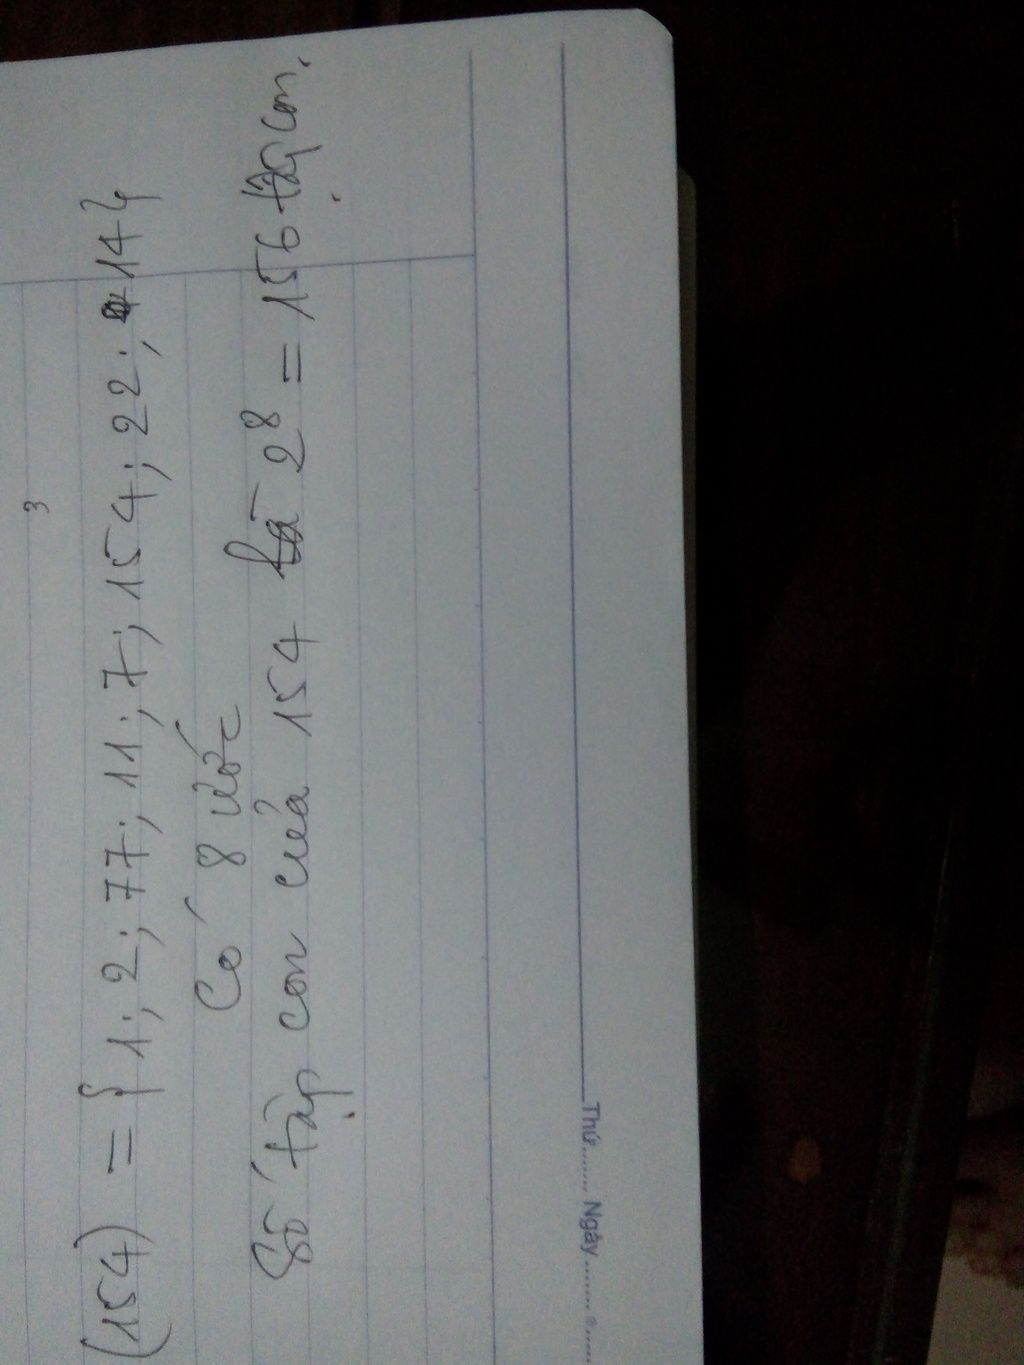 3
(154) = { 1; 2; 77; 11; 7; 154; 22; 14}
Có 8 ước
Số tập con của 154 là 2⁸ = 156 tập con.
Thứ....... Ngày.......